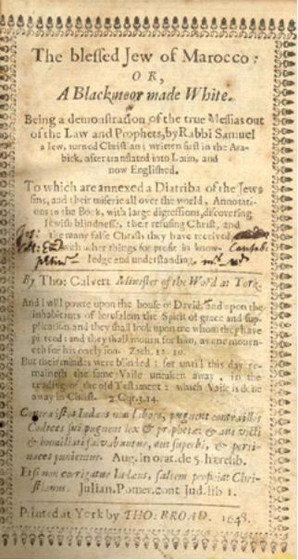 The blessed Jew of Marocco:
OR,
A Blackmoor made White.
Being a demonstration of the true Messias out
of the Law and Prophets, by Rabbi Samuel
a Jew, turned Christian; written first in the Ara-
bick, after translated into Latin, and
now Englished.
To which are annexed a Diatriba of the Jews
sins, and their miserie all over the world, Annotati-
ons to the Book, with large digressions, discovering
Jewish blindnesse, their refusing Christ, and
the many false Christs they have received
with other things for profit in know-
ledge and understanding.
By Tho: Calvert Minister of the Word at York.
And I will powre upon the house of David, and upon the
inhabitants of Jerusalem the Spirit of grace and sup-
plication and they shall look upon me whom they have
pierced: and they shall mourn for him, as one mourn-
eth for his only son. Zach. 12. 10.
But their minds were blinded: for until this day re-
maineth the same Vaile untaken away, in the
reading of the old Testament: which Vaile is done
away in Christ. 2 Cor. 3. 14.
Contra istos Judæos non labora, pugnent contra illos
Codices sui pugnent lex & prophetæ & aut victi
& humiliati salvabuntur, aut superbi, & persi-
Aug. in orat. de 5. hæresib.
Etsi non corrigatur Judæus, saltem proficiat Chri-
stianus. Julian. Pomer. cont Jud. lib 1.
Printed at York by THO: BROAD. 1648.